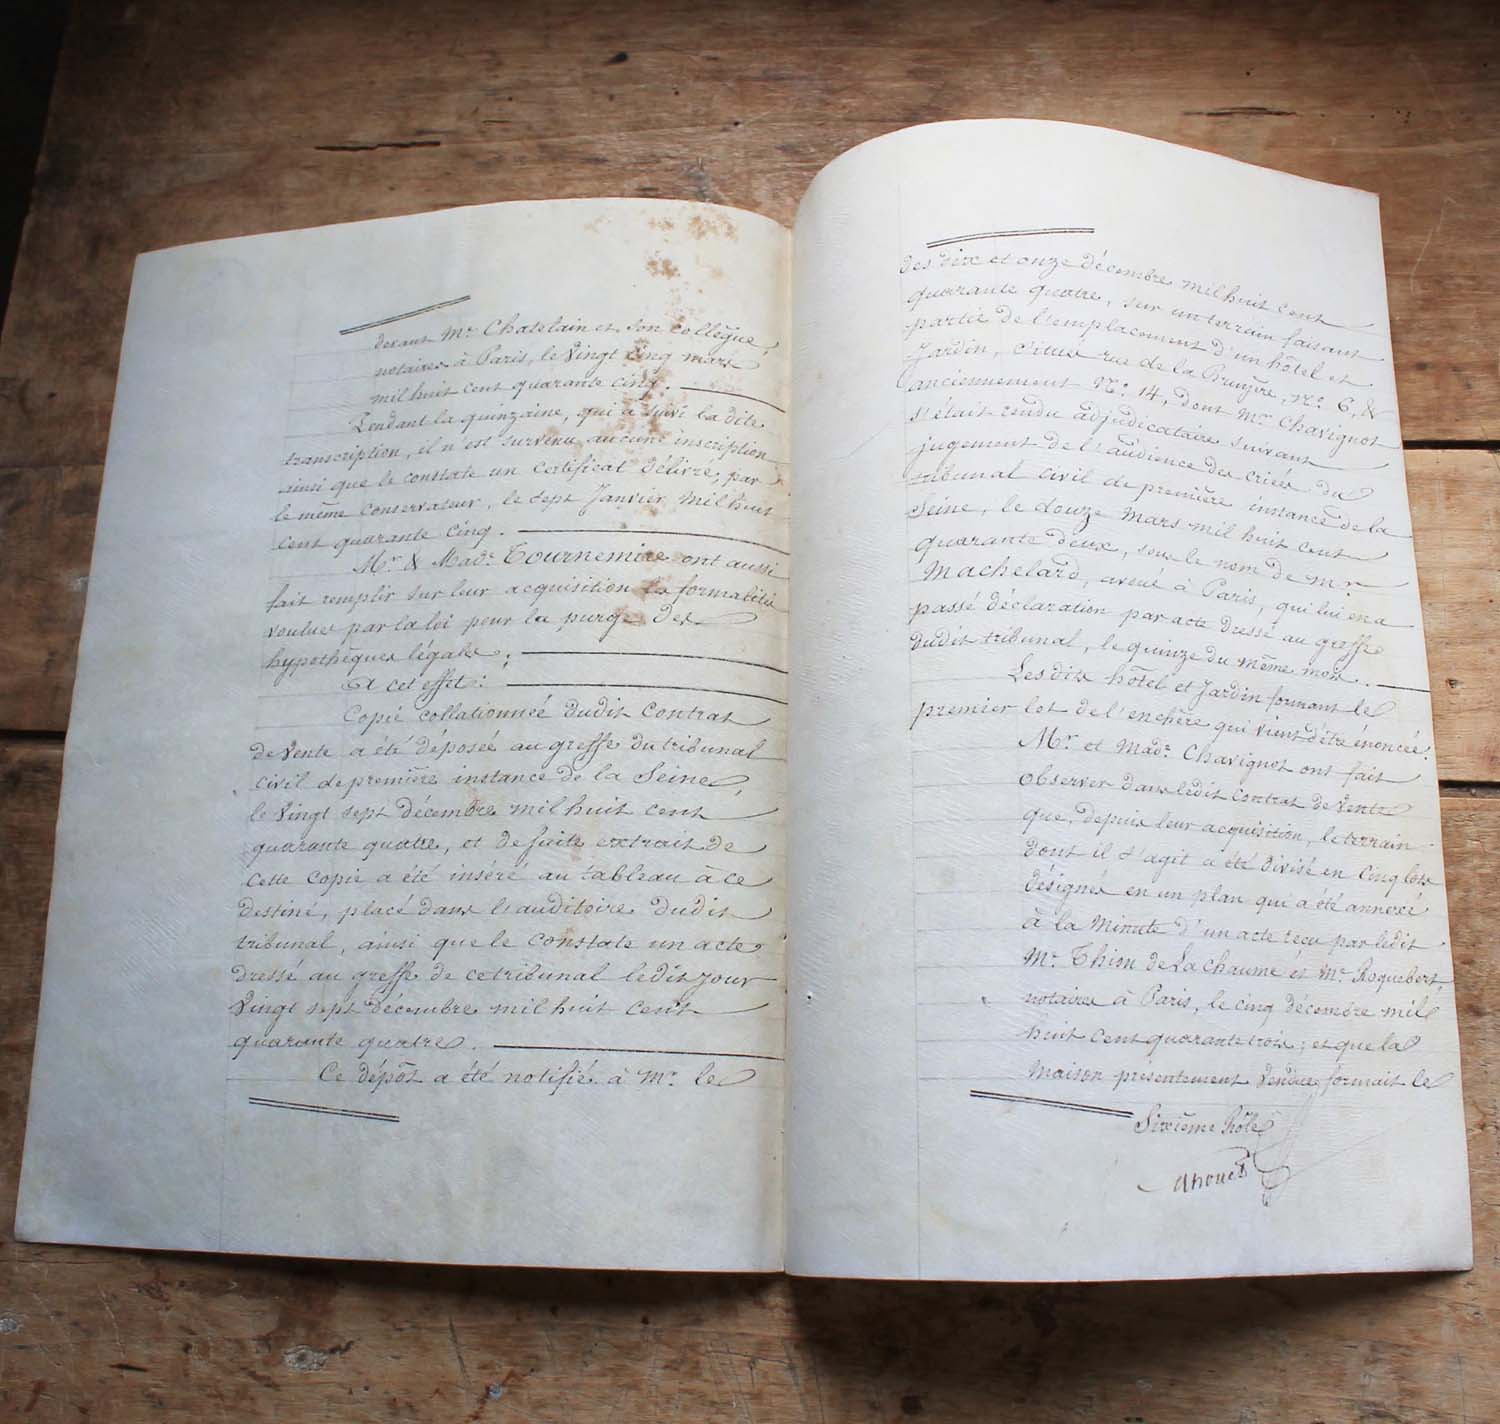 devant Mr. Chatelain et son collègue,
notaires à Paris, le Vingt cinq mars
mil huit cent quarante cinq.
Pendant la quinzaine, qui a suivi la dite
transcription, il n'est survenu aucune inscription
ainsi que le constate un certificat délivré, par
le même Conservateur, le sept Janvier Mil huit
cent quarante cinq.
Mr. & Made. Tournemire ont aussi
fait remplir sur leur acquisition les formalités
voulues par la loi pour la purge des
hypothèques légales;
A cet effet:
Copie collationnée dudit Contrat
de Vente a été déposée au greffe du tribunal
civil de première instance de la Seine,
le Vingt sept décembre mil huit cent
quarante quatre, et de suite extrait de
cette copie a été inséré au tableau à ce
destiné, placé dans l'auditoire dudit
tribunal, ainsi que le constate un acte
dressé au greffe de ce tribunal ledit jour
Vingt sept décembre mil huit cent
quarante quatre.
Ce dépôt a été notifié à Mr. le
des dix et onze décembre mil huit cent
quarante quatre, sur un terrain faisant
partie de l'emplacement d'un hôtel et
Jardin, situés rue de la Bruyère, No. 6, &
anciennement No. 14, dont Mr. Chavignot
s'était rendu adjudicataire suivant
jugement de l'audience des criées du
tribunal civil de première instance de la
Seine, le douze Mars mil huit cent
quarante deux, sous le nom de Mr.
Machelard, avoué à Paris, qui lui en a
passé déclaration par acte dressé au greffe
dudit tribunal, le quinze du même mois.
Les dits hôtel et Jardin formant le
premier lot de l'enchère qui vient d'être énoncée.
Mr. et Made. Chavignot ont fait
observer dans ledit contrat de Vente
que, depuis leur acquisition, le terrain
dont il s'agit a été divisé en Cinq lots
désignés en un plan qui a été annexé
à la Minute d'un acte reçu par ledit
Mr. Thion de La Chaume et Mr. Roquebert,
notaires à Paris, le cinq décembre mil
huit cent quarante trois; et que la
Maison présentement Vendue formait le
Sixième Rôle